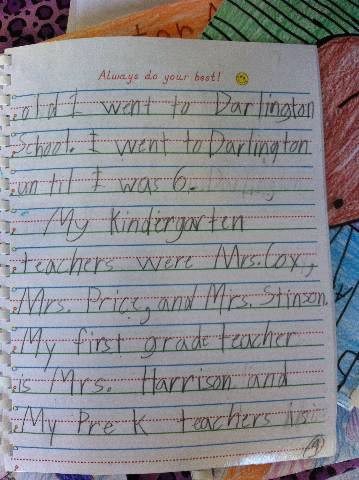 Always do your best!
old I went to Darlington
School. I went to Darlington
until I was 6.
My Kindergarten
teachers were Mrs. Cox,
Mrs. Price, and Mrs. Stinson.
My first grade teacher
is Mrs. Harrison and
My Pre K teachers